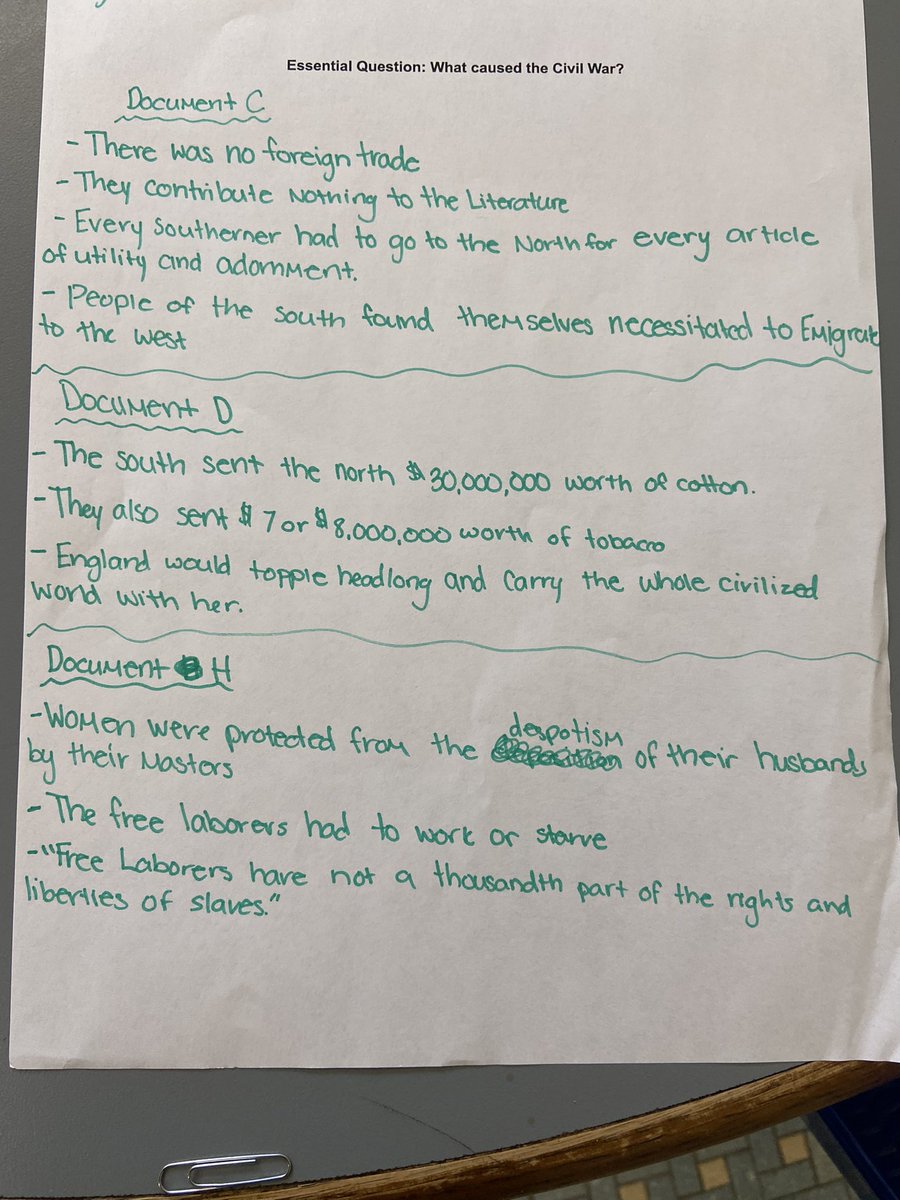 Essential Question: What caused the Civil War?
Document C
- There was no foreign trade
- They contribute nothing to the Literature
- Every southerner had to go to the North for every article
of utility and adornment.
- People of the south found themselves necessitated to Emigrate
to the west
Document D
- The south sent the north $30,000,000 worth of cotton.
- They also sent $7 or $8,000,000 worth of tobacco
- England would topple headlong and carry the whole civilized
world with her.
Document H
- Women were protected from the despotism of their husbands
by their Masters
- The free laborers had to work or starve
- "Free Laborers have not a thousandth part of the rights and
liberties of slaves."